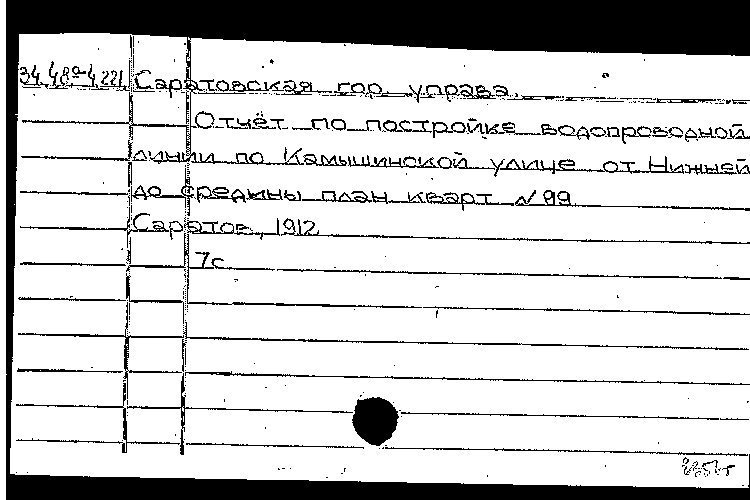 34.48а4.221. Саратовская гор. управа.
Отчёт по постройке водопроводной
линии по Камышинской улице от Нижней
до средины план кварт №99
Саратов, 1912
7с